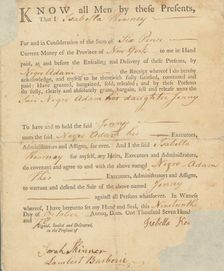 KNOW all Men by these Presents,
That I Isabella
For and in Consideration of the Sum of Six Pence
Current Money of the Province of New York to me in Hand
paid, at and before the Ensealing and Delivery of these Presents, by
Negro Adam the Receipt whereof I do hereby
acknowledge, and myself to be therewith fully satisfied, contented and
paid: Have granted, bargained, sold, released, and by these Presents
do fully, clearly and absolutely grant, bargain, sell and release unto the
Said Negro Adam her daughter Jenny
To have and to hold the said Jenny
unto the said Negro Adam his Executors,
Administrators and Assigns, for ever. And I the said Isabella
for myself, my Heirs, Executors and Administrators,
do covenant and agree to and with the said Negro Adam
Executors, Administrators and Assigns,
to warrant and defend the Sale of the above-named Jenny
against all Persons whatsoever. In Witness
whereof, I have hereunto set my Hand and Seal, this Nineteenth
Day of October Annoq; Dom. One Thousand Seven Hundred
and
Signed, Sealed and Delivered,
in the Presence of
Isabella
Sarah Skinner
Lambert Barberie